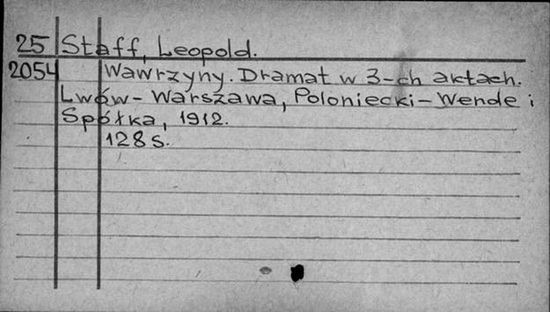 25 Staff, Leopold.
2054 Wawrzyny. Dramat w 3-ch aktach.
Lwów - Warszawa, Poloniecki - Wende i
Spółka, 1912.
128 s.